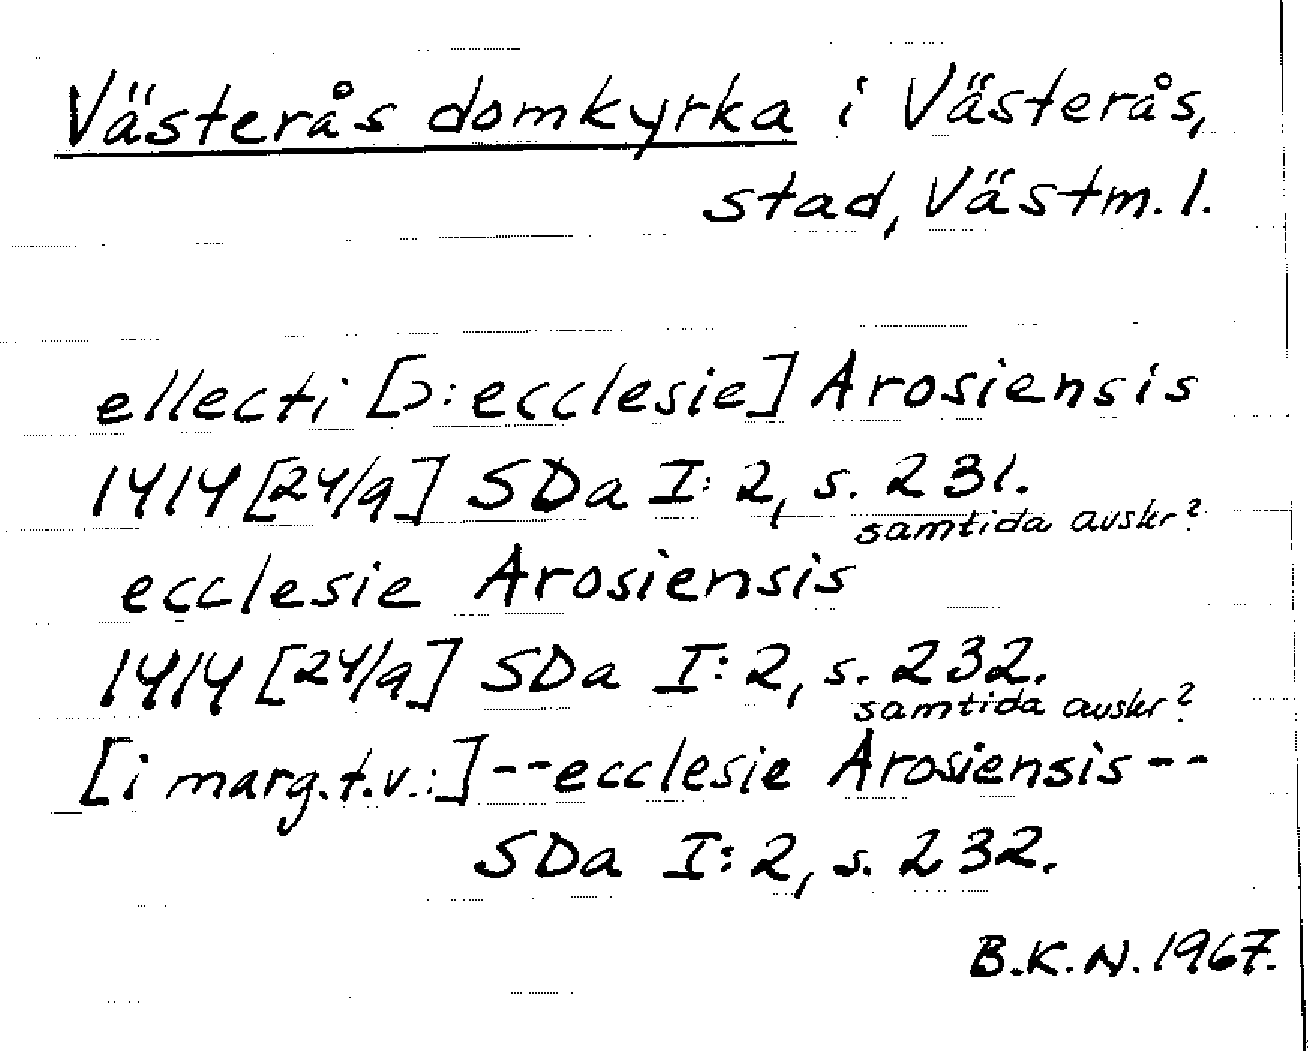 Västerås domkyrka i Västerås,
stad, Västm. l.
ellecti [ɔ: ecclesie] Arosiensis
1414 [24/9] SDa I: 2, s. 231.
samtida avskr?
ecclesie Arosiensis
1414 [24/9] SDa I: 2, s. 232.
samtida avskr?
[i marg. t.v.:] -- ecclesie Arosiensis --
SDa I: 2, s. 232.
B.K.N. 1967.